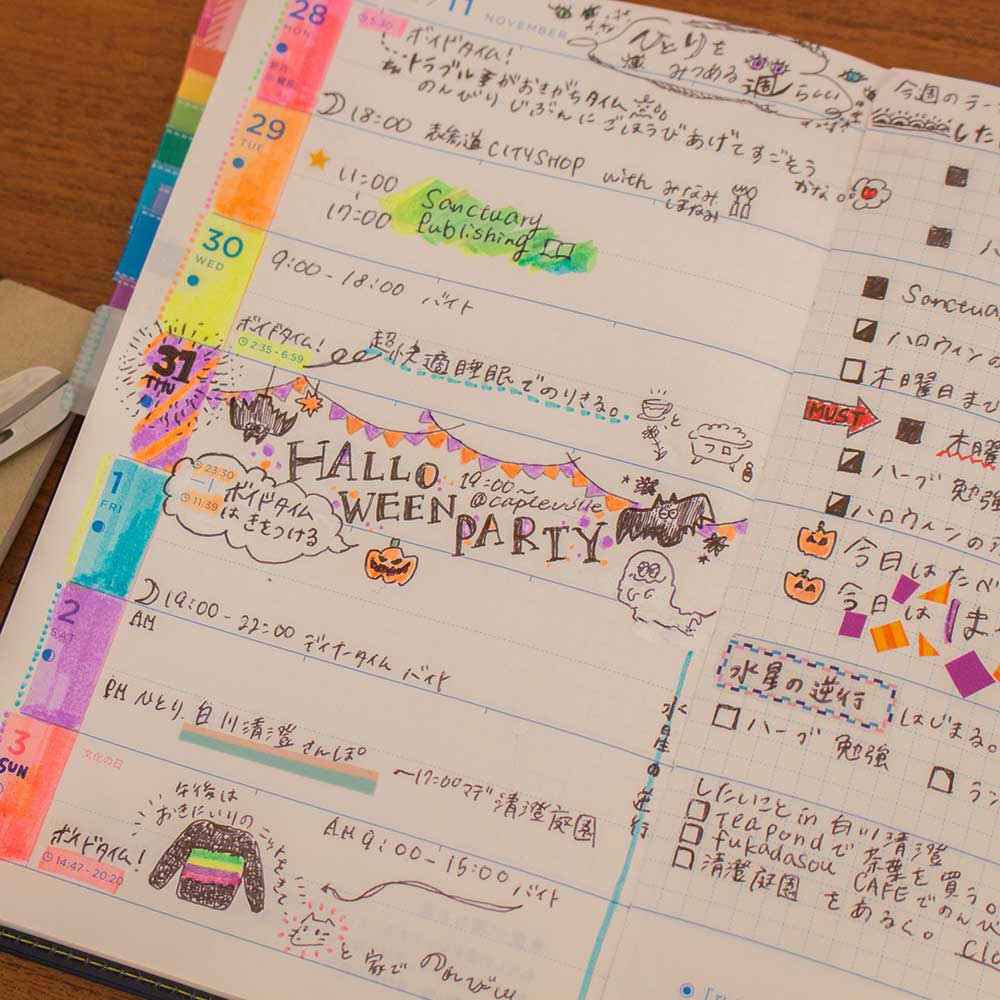 11 NOVEMBER
ひとりを
みつめる週らしい
28
MON
5:30
ボイドタイム!
トラブル事がおきがちタイム
のんびり じぶんに ごほうびあげてすごそう
かな。
29
TUE
18:00 表参道 CITYSHOP with みなみ
まなみ
11:00
17:00
Sanctuary
Publishing
30
WED
9:00-18:00 バイト
ボイドタイム!
2:35-6:59
超快適睡眠でのりきる。
と
フロ
31
THU
HALLO
WEEN
PARTY
19:00~
23:30
11:39
ボイドタイム
は きをつける
1
FRI
19:00-22:00 ディナータイム バイト
2
SAT
AM
PM ひとり 白川清澄さんぽ
~17:00マデ 清澄庭園
3
SUN
文化の日
AM 9:00-15:00 バイト
午後は
おきにいりの
ニットをきて
ボイドタイム!
14:47-20:20
と 家で のんびり
水星の逆行
今週の
ハロウィンの
木曜日まで
MUST
木曜
ハーブ 勉強
ハロウィンの
今日はたべ
今日は
水星の逆行
はじまる。
ハーブ 勉強
したいこと in 白川清澄
teapondで 茶葉を買う。
fukadasou CAFEでのんび
清澄庭園 をあるく。